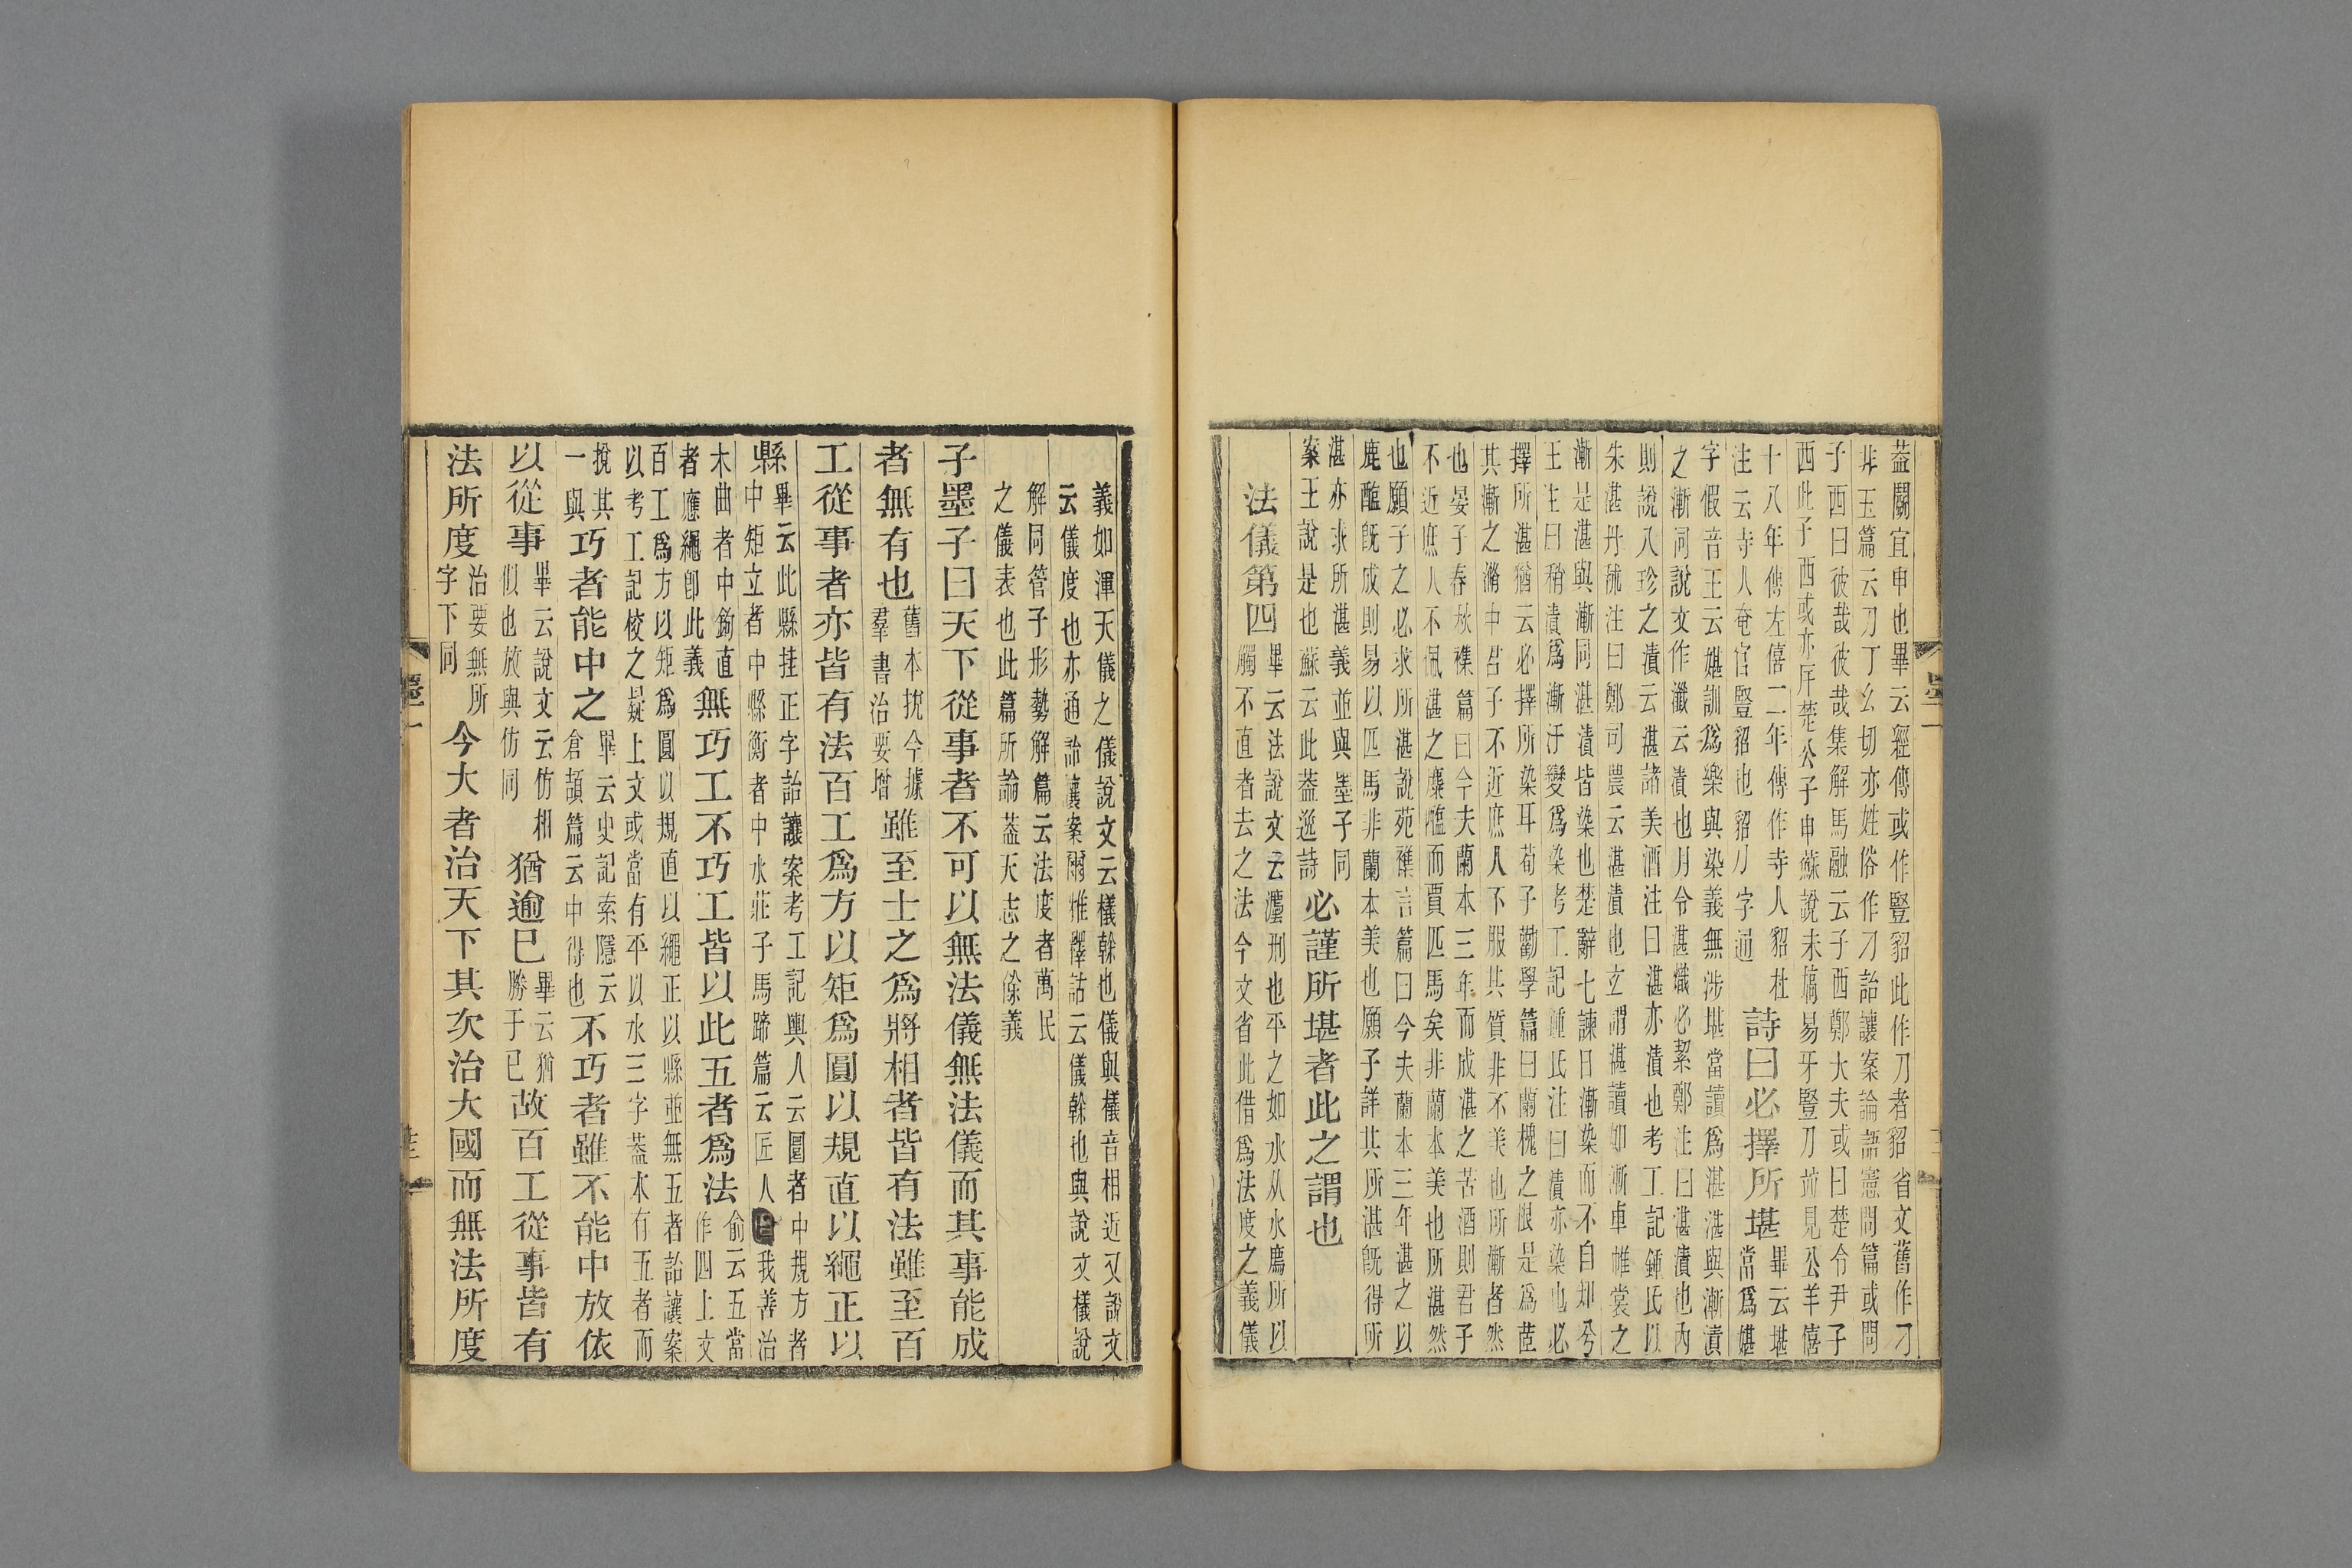 葢闕宜申也畢云經傳或作豎貂此作刀者貂省文舊作刁
非玉篇云刀丁幺切亦姓俗作刁詒讓案論語憲問篇或問
子西曰彼哉彼哉集解馬融云子西鄭大夫或曰楚令尹子
西此子西或亦斥楚公子申蘇說未塙易牙豎刀竝見公羊僖
十八年傳左僖二年傳作寺人貂杜
注云寺人奄官豎貂也貂刀字通
詩曰必擇所堪
畢云堪
當爲媅
字假音王云媅訓爲樂與染義無涉堪當讀爲湛湛與漸漬
之漸同說文作瀸云漬也月令湛熾必絜鄭注曰湛漬也內
則說八珍之漬云湛諸美酒注曰湛亦漬也考工記鍾氏以
朱湛丹秫注曰鄭司農云湛漬也玄謂湛讀如漸車帷裳之
漸是湛與漸同湛漬皆染也楚辭七諫曰漸染而不自知兮
王注曰稍漬爲漸汙變爲染考工記鍾氏注曰漬亦染也必
擇所湛猶云必擇所染耳荀子勸學篇曰蘭槐之根是爲茝
其漸之滫中君子不近庶人不服其質非不美也所漸者然
也晏子春秋襍篇曰今夫蘭本三年而成湛之苦酒則君子
不近庶人不佩湛之麋醢而賈匹馬矣非蘭本美也所湛然
也願子之必求所湛說苑襍言篇曰今夫蘭本三年湛之以
鹿醢旣成則易以匹馬非蘭本美也願子詳其所湛旣得所
湛亦求所湛義並與墨子同
案王說是也蘇云此葢逸詩
必謹所堪者此之謂也
法儀第四
畢云法說文云灋刑也平之如水从水廌所以
觸不直者去之法今文省此借爲法度之義儀
義如渾天儀之儀說文云檥榦也儀與檥音相近又說文
云儀度也亦通詒讓案爾雅釋詁云儀榦也與說文檥說
解同管子形勢解篇云法度者萬民
之儀表也此篇所論葢天志之餘義
子墨子曰天下從事者不可以無法儀無法儀而其事能成
者無有也
舊本挩今據
羣書治要增
雖至士之爲將相者皆有法雖至百
工從事者亦皆有法百工爲方以矩爲圓以規直以繩正以
縣
畢云此縣挂正字詒讓案考工記輿人云圜者中規方者
中矩立者中縣衡者中水莊子馬蹄篇云匠人曰我善治
木曲者中鉤直
者應繩卽此義
無巧工不巧工皆以此五者爲法
俞云五當
作四上文
百工爲方以矩爲圓以規直以繩正以縣並無五者詒讓案
以考工記校之疑上文或當有平以水三字葢本有五者而
挩其
一與
巧者能中之
畢云史記索隱云
倉頡篇云中得也
不巧者雖不能中放依
以從事
畢云說文云仿相
似也放與仿同
猶逾已
畢云猶
勝于已
故百工從事皆有
法所度
治要無所
字下同
今大者治天下其次治大國而無法所度